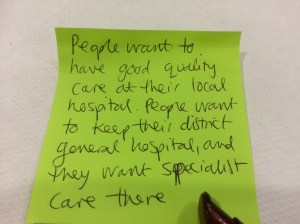 People want to
have good quality
care at their local
hospital. People want
to keep their district
general hospital, and
they want specialist
care there